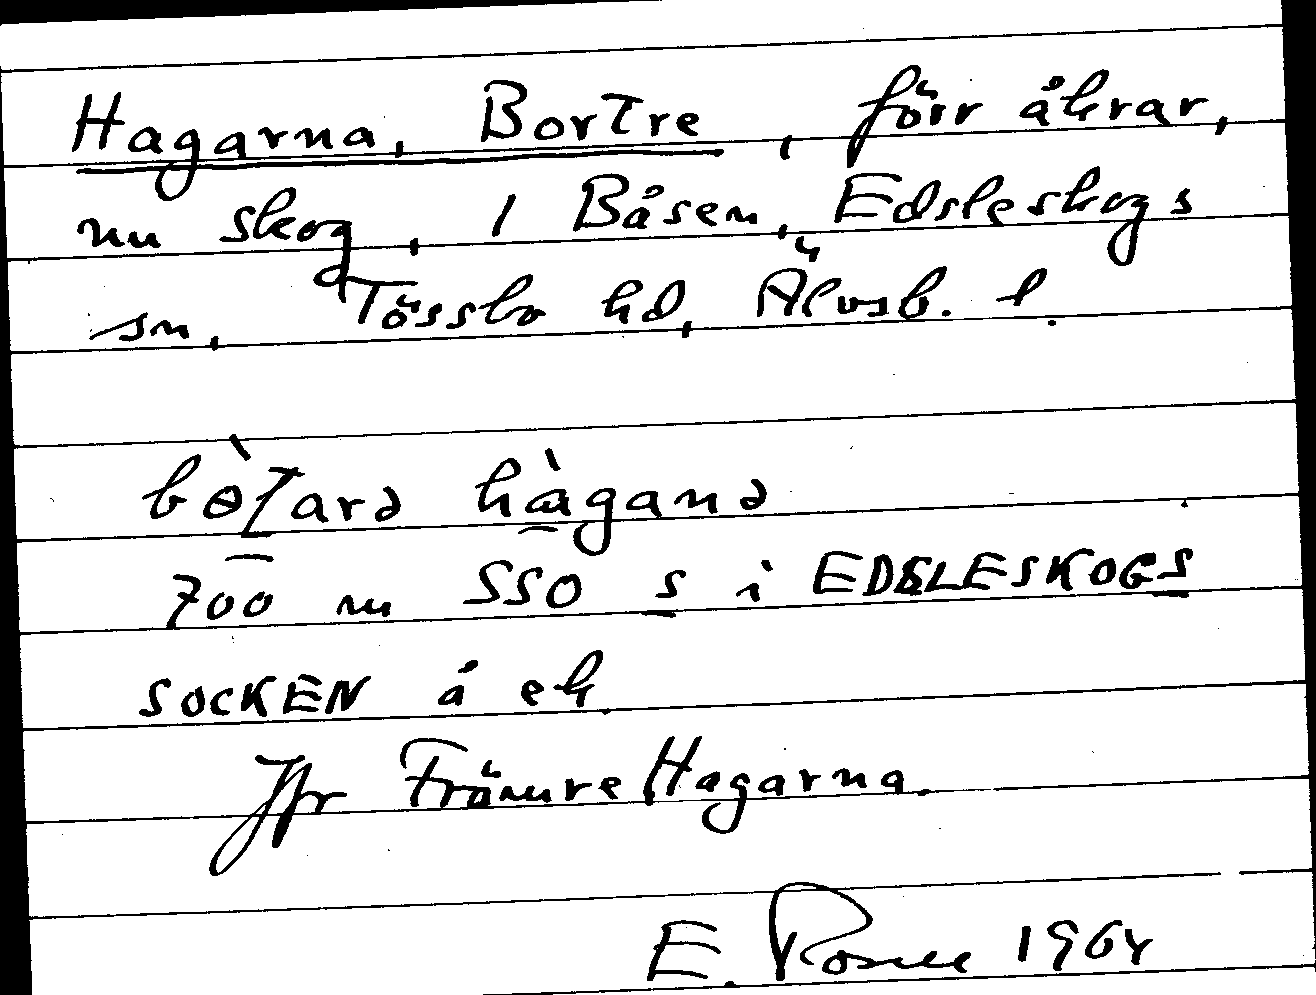 Hagarna, Bortre, förr åkrar,
nu skog, 1 Båsen, Edsleskogs
sn, Tössbo hd, Älvsb. l.
bòtarə hàganə
700 m SSO s i EDSLESKOGS
SOCKEN å ek.
Jfr Främre Hagarna.
E. Rosell 1964